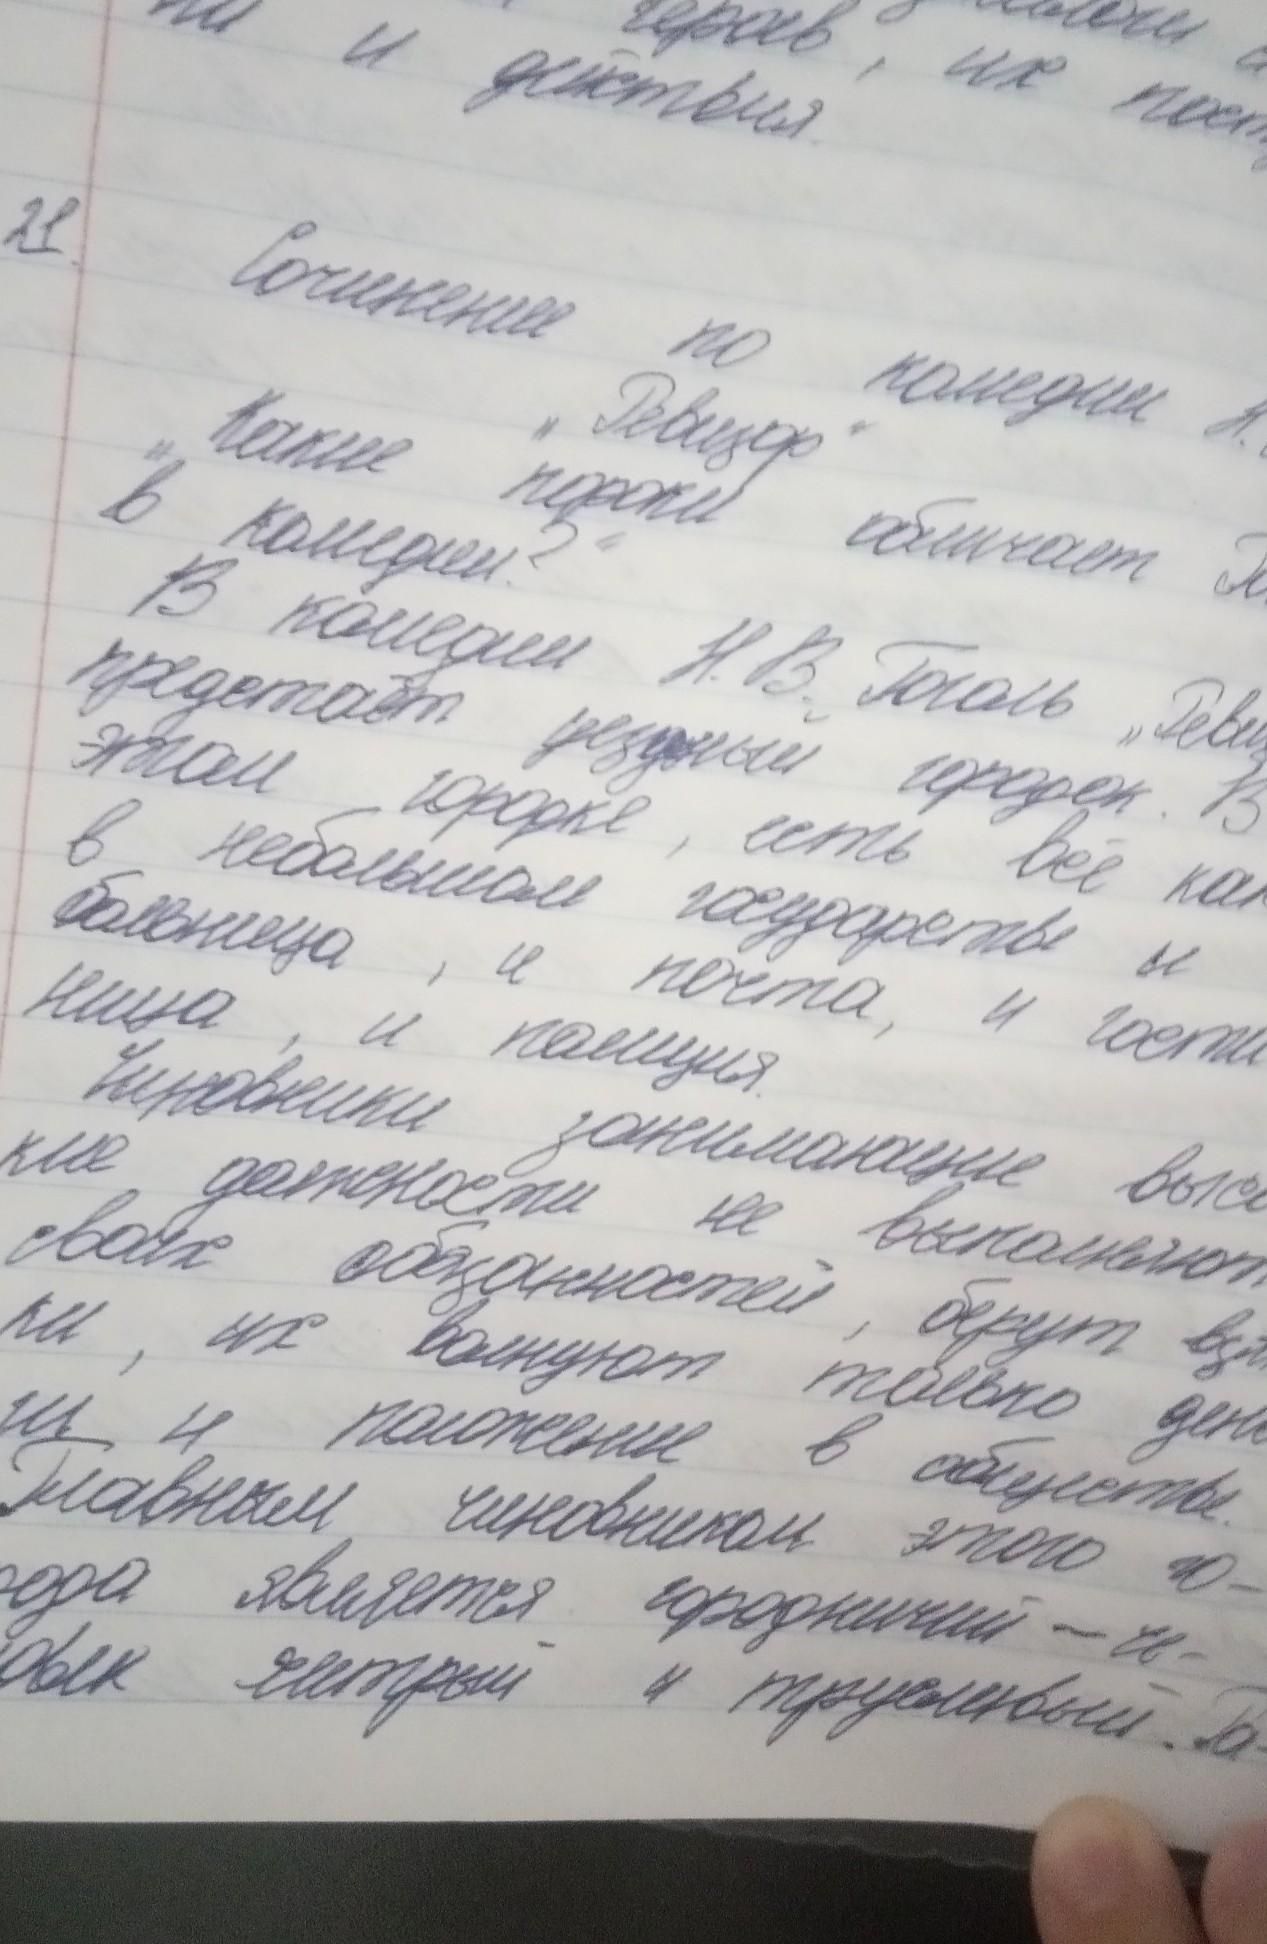 ни и действия.
героев, их пост
21.
Сочинение по комедии Н.
„Ревизор“
„Какие пороки обличает Го
в комедии?“
В комедии Н.В. Гоголь „Реви
предстаёт уездный городок. В
этом городке, есть всё как
в небольшом государстве и
больница, и почта, и гости
ница, и полиция.
Чиновники занимающие высо
кие должности не выполняют
своих обязанностей, берут взят
ки, их волнуют только день
ги и положение в обществе.
Главным чиновником этого го-
рода является городничий – че-
ловек хитрый и трусливый. Го-